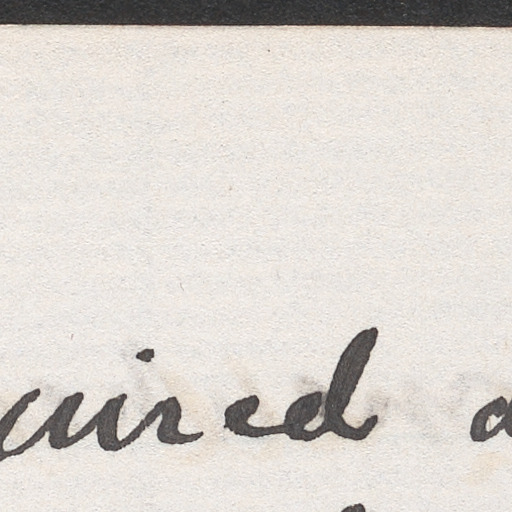 uired a